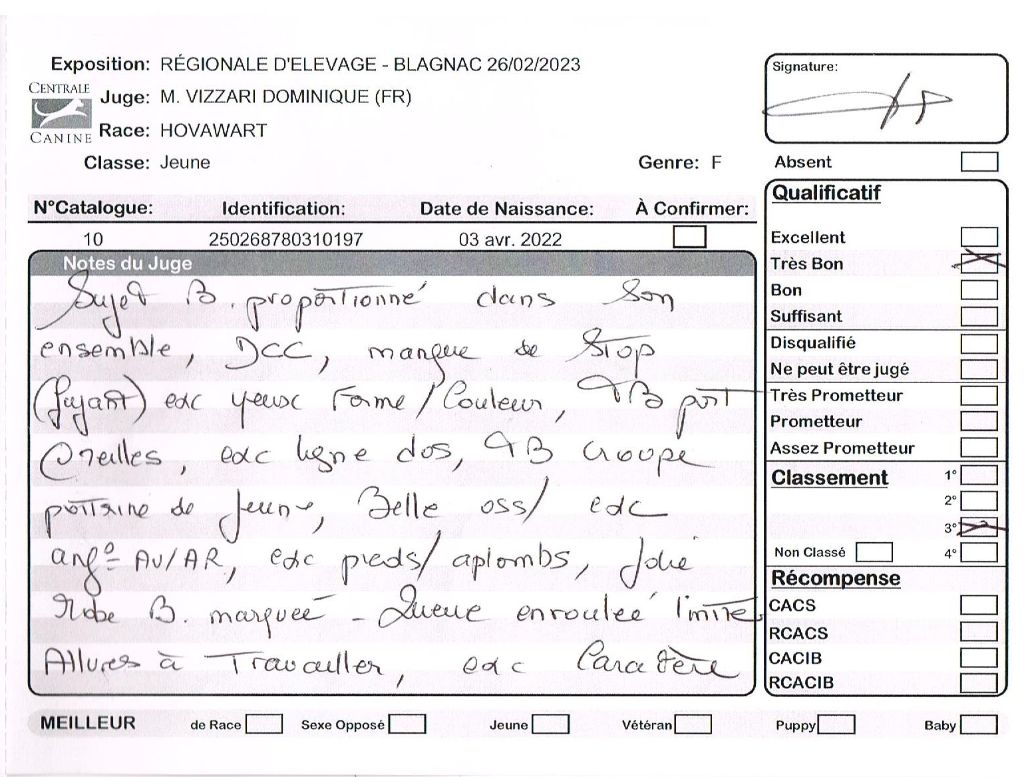 Exposition: RÉGIONALE D'ELEVAGE - BLAGNAC 26/02/2023
CENTRALE CANINE
Juge: M. VIZZARI DOMINIQUE (FR)
Race: HOVAWART
Classe: Jeune Genre: F
Signature:
Absent
N°Catalogue: Identification: Date de Naissance: À Confirmer:
10 250268780310197 03 avr. 2022
Notes du Juge
Sujet B. proportionné dans son
ensemble, DCC, manque de Stop
(fuyant) exc yeux Forme/Couleur, TB port
Oreilles, exc ligne dos, TB Croupe
poitrine de Jeune, Belle oss/ exc
ang° AV/AR, exc pieds/aplombs, Jolie
Robe B. marqueé - Queue enrouleé limite
Allures à Travailler, exc Caractère
Qualificatif
Excellent
Très Bon
Bon
Suffisant
Disqualifié
Ne peut être jugé
Très Prometteur
Prometteur
Assez Prometteur
Classement 1°
2°
3°
Non Classé 4°
Récompense
CACS
RCACS
CACIB
RCACIB
MEILLEUR de Race Sexe Opposé Jeune Vétéran Puppy Baby